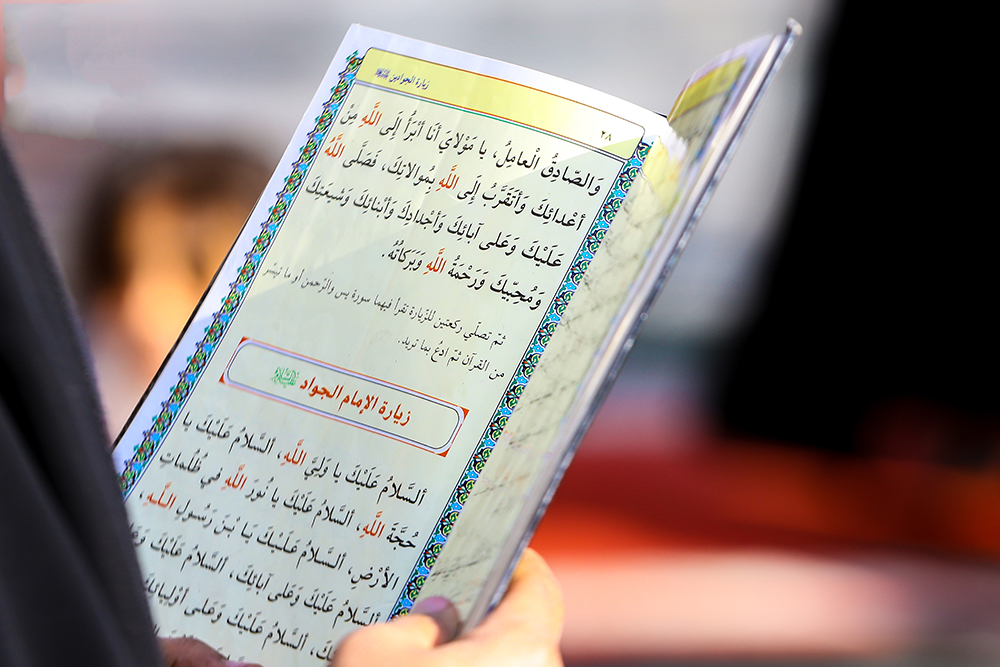 زيارة الجوادين
٢٨
وَالصّادِقُ الْعامِلُ، يا مَوْلايَ أنَا أَبْرَأُ إلَى اللَّهِ مِنْ
أعْدائِكَ وَأتَقَرَّبُ إلَى اللَّهِ بِمُوالاتِكَ، فَصَلَّى اللَّهُ
عَلَيْكَ وَعَلى آبائِكَ وَأجْدادِكَ وَأبْنائِكَ وَشيعَتِكَ
وَمُحِبّيكَ وَرَحْمَةُ اللَّهِ وَبَرَكاتُهُ.
ثمّ تصلّي ركعتين للزّيارة تقرأ فيهما سورة يس والرّحمن أو ما تيسّر
من القرآن ثمّ ادعُ بما تريد.
زيارة الإمام الجواد
اَلسَّلامُ عَلَيْكَ يا وَلِيَّ اللَّهِ، اَلسَّلامُ عَلَيْكَ يا
حُجَّةَ اللَّهِ، اَلسَّلامُ عَلَيْكَ يا نُورَ اللَّهِ في ظُلُماتِ
الأرْضِ، اَلسَّلامُ عَلَيْكَ يَا بْنَ رَسُولِ اللَّهِ،
اَلسَّلامُ عَلَيْكَ وَعَلى آبائِكَ، اَلسَّلامُ عَلَيْكَ
اَلسَّلامُ عَلَيْكَ وَعَلى أوْلِيائِكَ